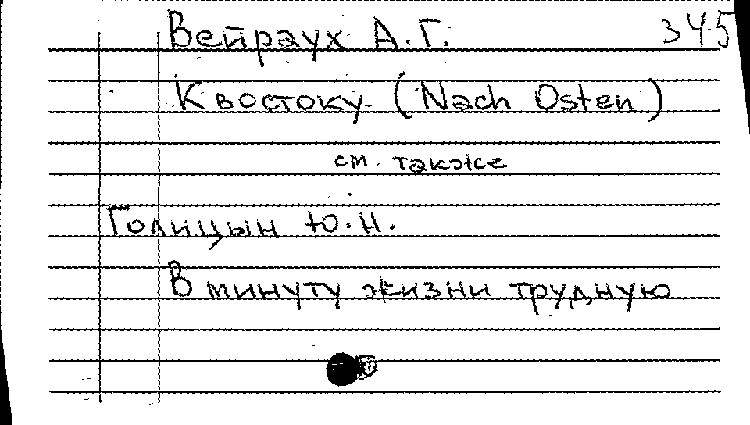 Вейраух А.Г. 345
К востоку (Nach Osten)
см. также
Голицын Ю.Н.
В минуту жизни трудную